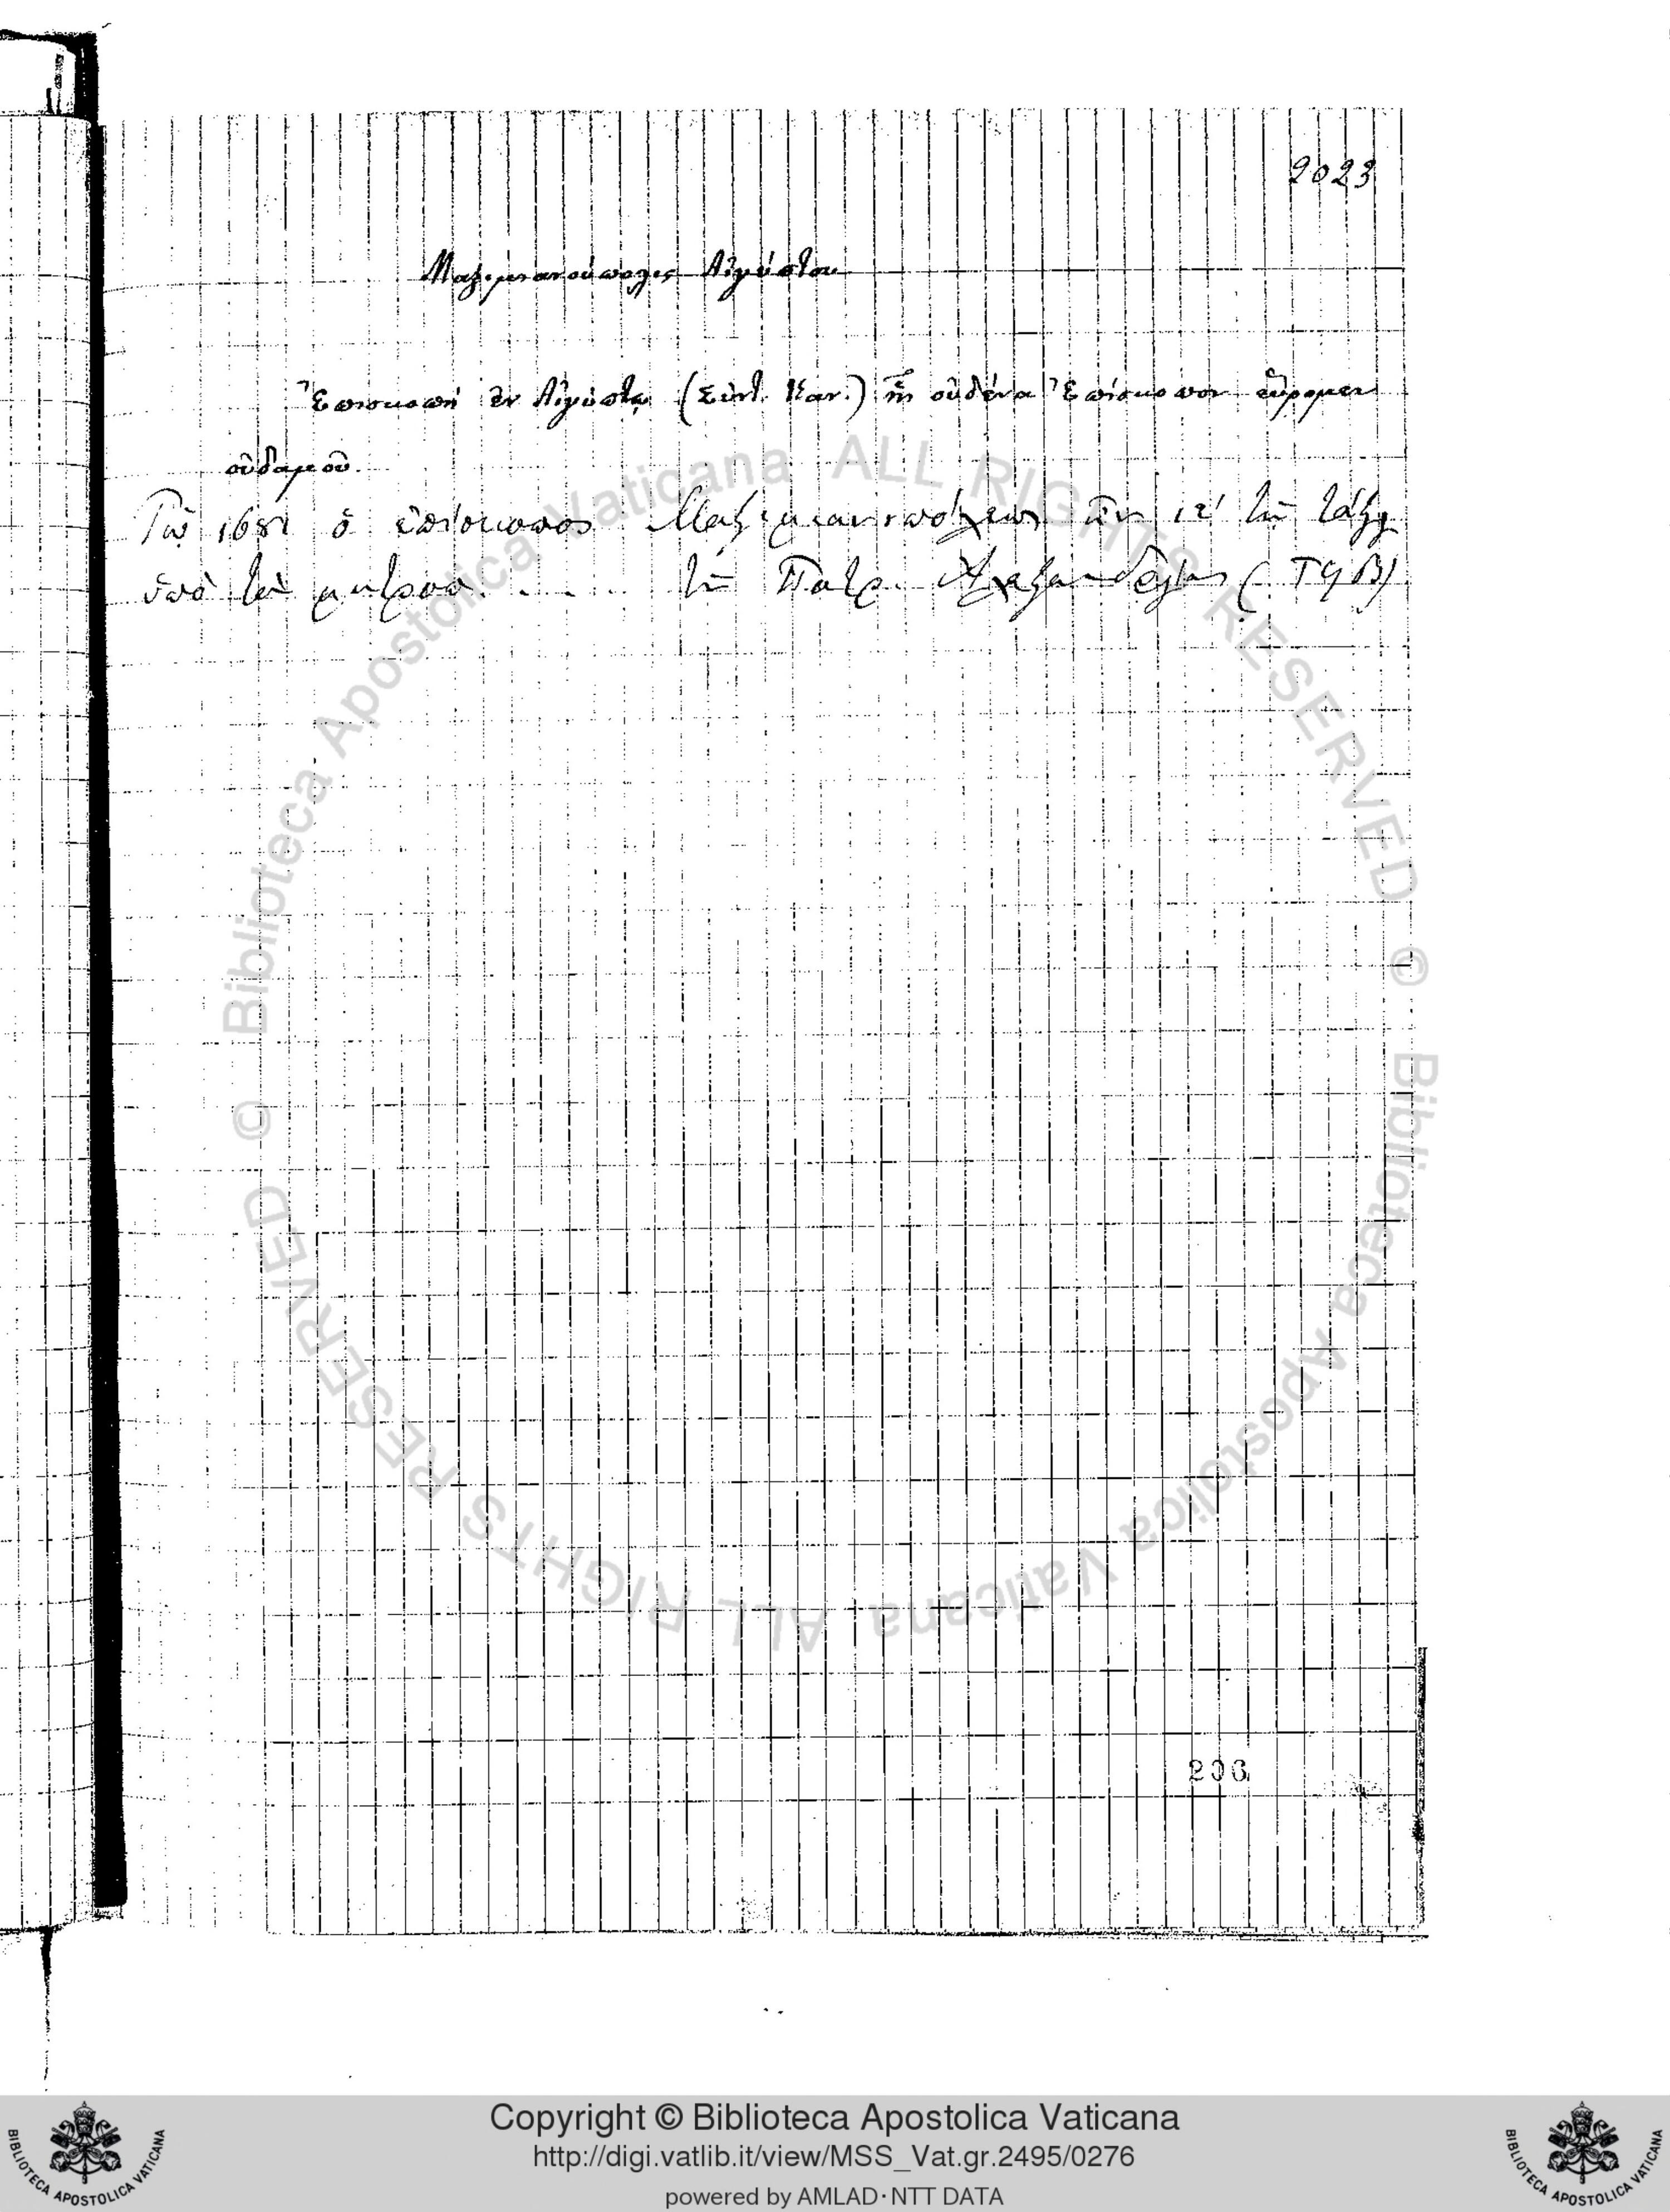 2023
Μαξιμιανούπολις Αἰγύπτου
Ἐπισκοπὴ ἐν Αἰγύπτῳ (Σύντ. Καν.) ἧς οὐδένα Ἐπίσκοπον εὕρομεν
οὐδαμοῦ.
Τῷ 1681 ὁ ἐπίσκοπος Μαξιμιανουπόλεως ἦν ιε' τῇ τάξει
ὑπὸ τὸν μητροπ. . . . . . τοῦ Πατρ. Ἀλεξανδρείας (ΤϞΒ)
206
© Biblioteca Apostolica Vaticana ALL RIGHTS RESERVED
© Biblioteca Apostolica Vaticana ALL RIGHTS RESERVED
Copyright © Biblioteca Apostolica Vaticana
http://digi.vatlib.it/view/MSS_Vat.gr.2495/0276
powered by AMLAD·NTT DATA
BIBLIOTECA APOSTOLICA VATICANA
BIBLIOTECA APOSTOLICA VATICANA